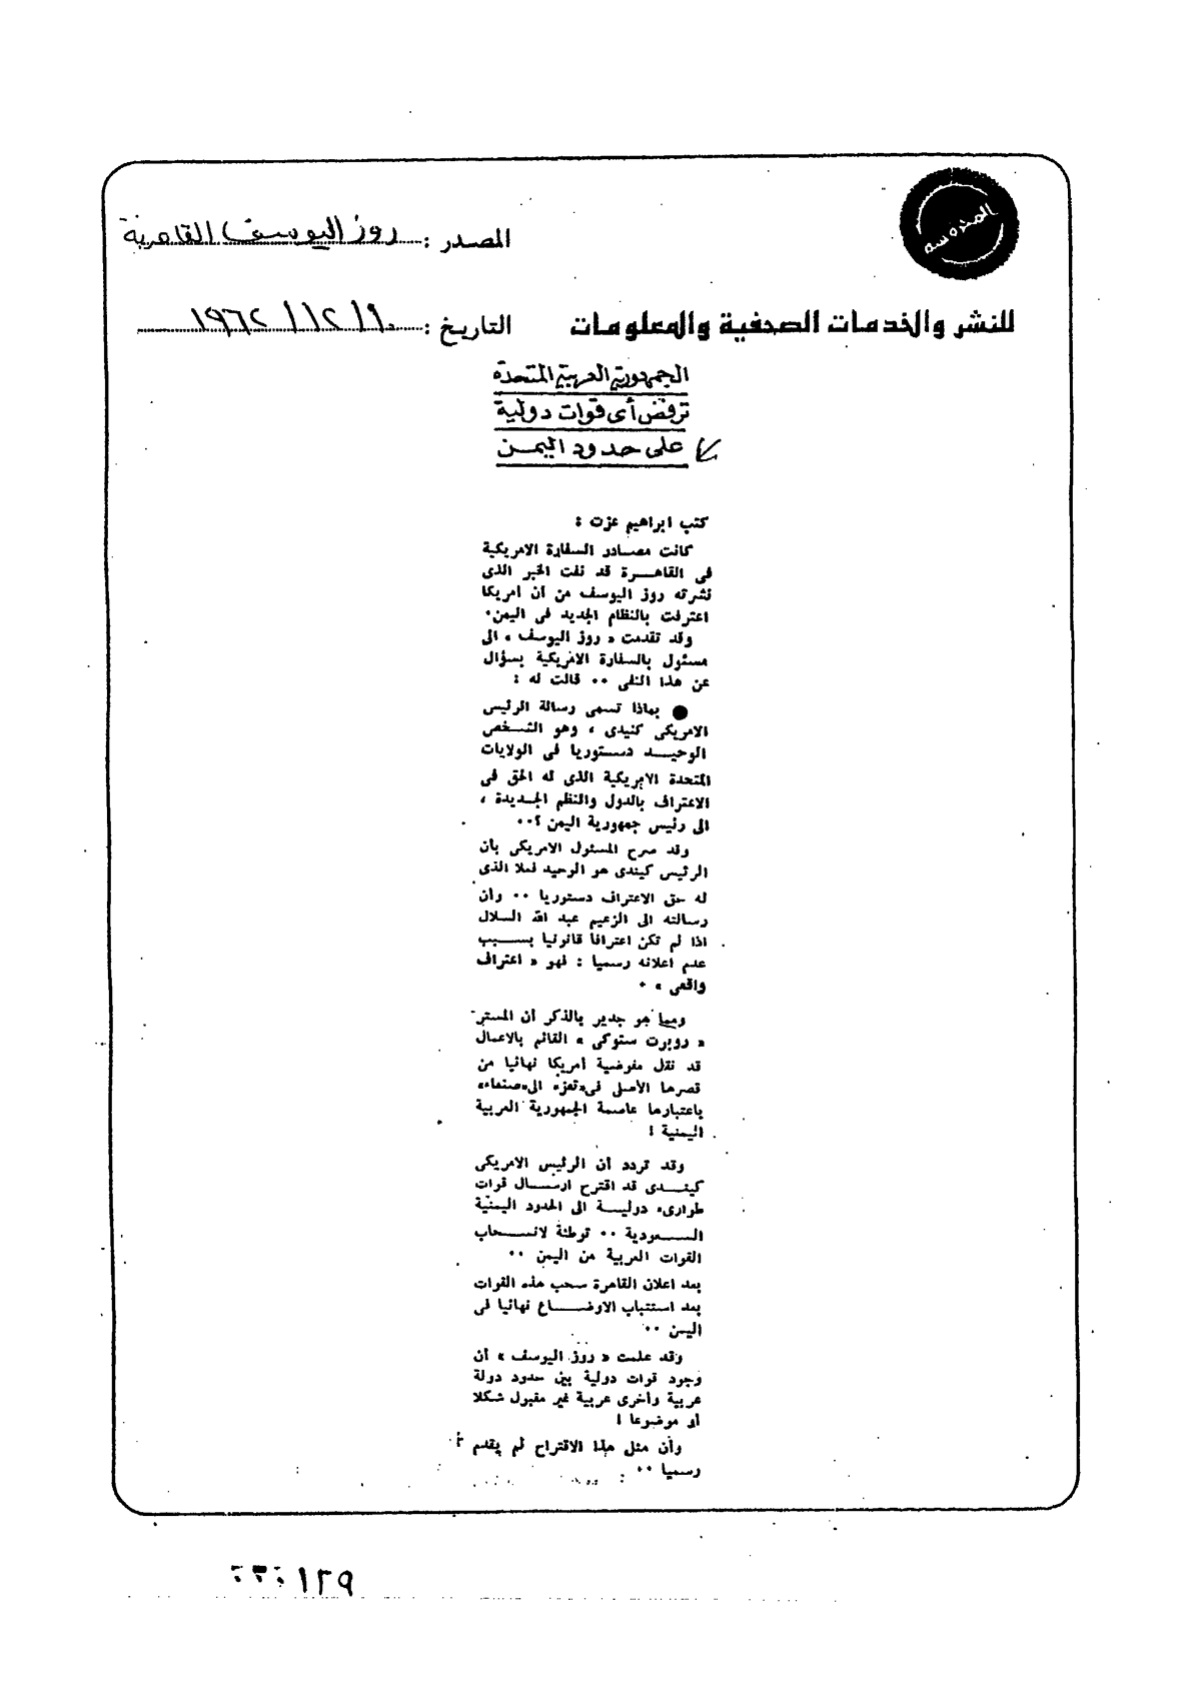 المحروسة
المصدر : روز اليوسف القاهرية
للنشر والخدمات الصحفية والمعلومات
التاريخ : ١٩٦٢/١٢/١٠
الجمهورية العربية المتحدة
ترفض أى قوات دولية
على حدود اليمن
كتب ابراهيم عزت :
كانت مصادر السفارة الامريكية
فى القاهرة قد نفت الخبر الذى
نشرته روز اليوسف من أن أمريكا
اعترفت بالنظام الجديد فى اليمن.
وقد تقدمت « روز اليوسف » الى
مسئول بالسفارة الامريكية بسؤال
عن هذا النفى ٠٠ قالت له :
● بماذا تسمى رسالة الرئيس
الامريكى كنيدى ، وهو الشخص
الوحيد دستوريا فى الولايات
المتحدة الامريكية الذى له الحق فى
الاعتراف بالدول والنظم الجديدة ،
الى رئيس جمهورية اليمن ؟٠٠
وقد صرح المسئول الامريكى بأن
الرئيس كيندى هو الوحيد فعلا الذى
له حق الاعتراف دستوريا ٠٠ وأن
رسالته الى الزعيم عبد الله السلال
اذا لم تكن اعترافا قانونيا بسبب
عدم اعلانه رسميا : فهو « اعتراف
واقعى » ٠
ومما هو جدير بالذكر أن المستر
« روبرت ستوكى » القائم بالاعمال
قد نقل مفوضية أمريكا نهائيا من
قصرها الأصلى فى «تعز» الى «صنعاء»
باعتبارها عاصمة الجمهورية العربية
اليمنية !
وقد تردد أن الرئيس الامريكى
كيندى قد اقترح ارسال قوات
طوارىء دولية الى الحدود اليمنية
السعودية ٠٠ توطئة لانسحاب
القوات العربية من اليمن ٠٠
بعد اعلان القاهرة سحب هذه القوات
بعد استتباب الاوضاع نهائيا فى
اليمن ٠٠
وقد علمت « روز اليوسف » أن
وجود قوات دولية بين حدود دولة
عربية وأخرى عربية غير مقبول شكلا
أو موضوعا !
وأن مثل هذا الاقتراح لم يقدم
رسميا ٠٠
١٢٩